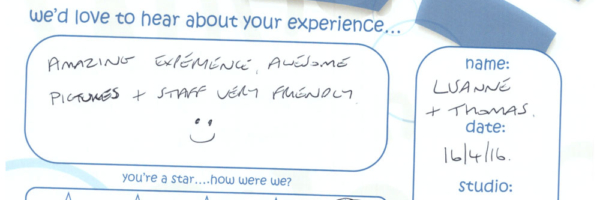 we'd love to hear about your experience...
AMAZING EXPERIENCE, AWESOME
PICTURES + STAFF VERY FRIENDLY.
name:
LUANNE
+ THOMAS.
date:
16/4/16.
you're a star....how were we?
studio: